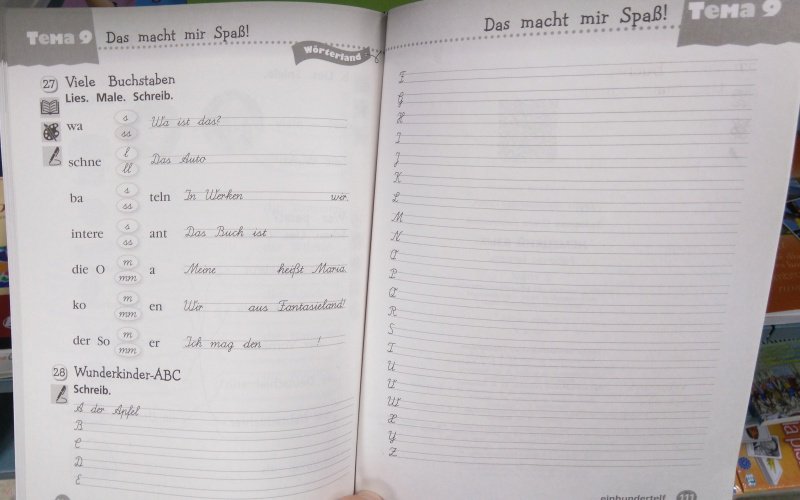 Тема 9 Das macht mir Spaß!
Wörterland
27 Viele Buchstaben
Lies. Male. Schreib.
wa s ss Wa ist das?
schne l ll Das Auto
ba s ss teln In Werken wir.
intere s ss ant Das Buch ist .
die O m mm a Meine heißt Maria.
ko m mm en Wir aus Fantasieland!
der So m mm er Ich mag den !
28 Wunderkinder-ABC
Schreib.
A der Apfel
B
C
D
E
Das macht mir Spaß! Тема 9
F
G
H
I
J
K
L
M
N
O
P
Q
R
S
T
U
V
W
X
Y
Z
einhundertelf 111